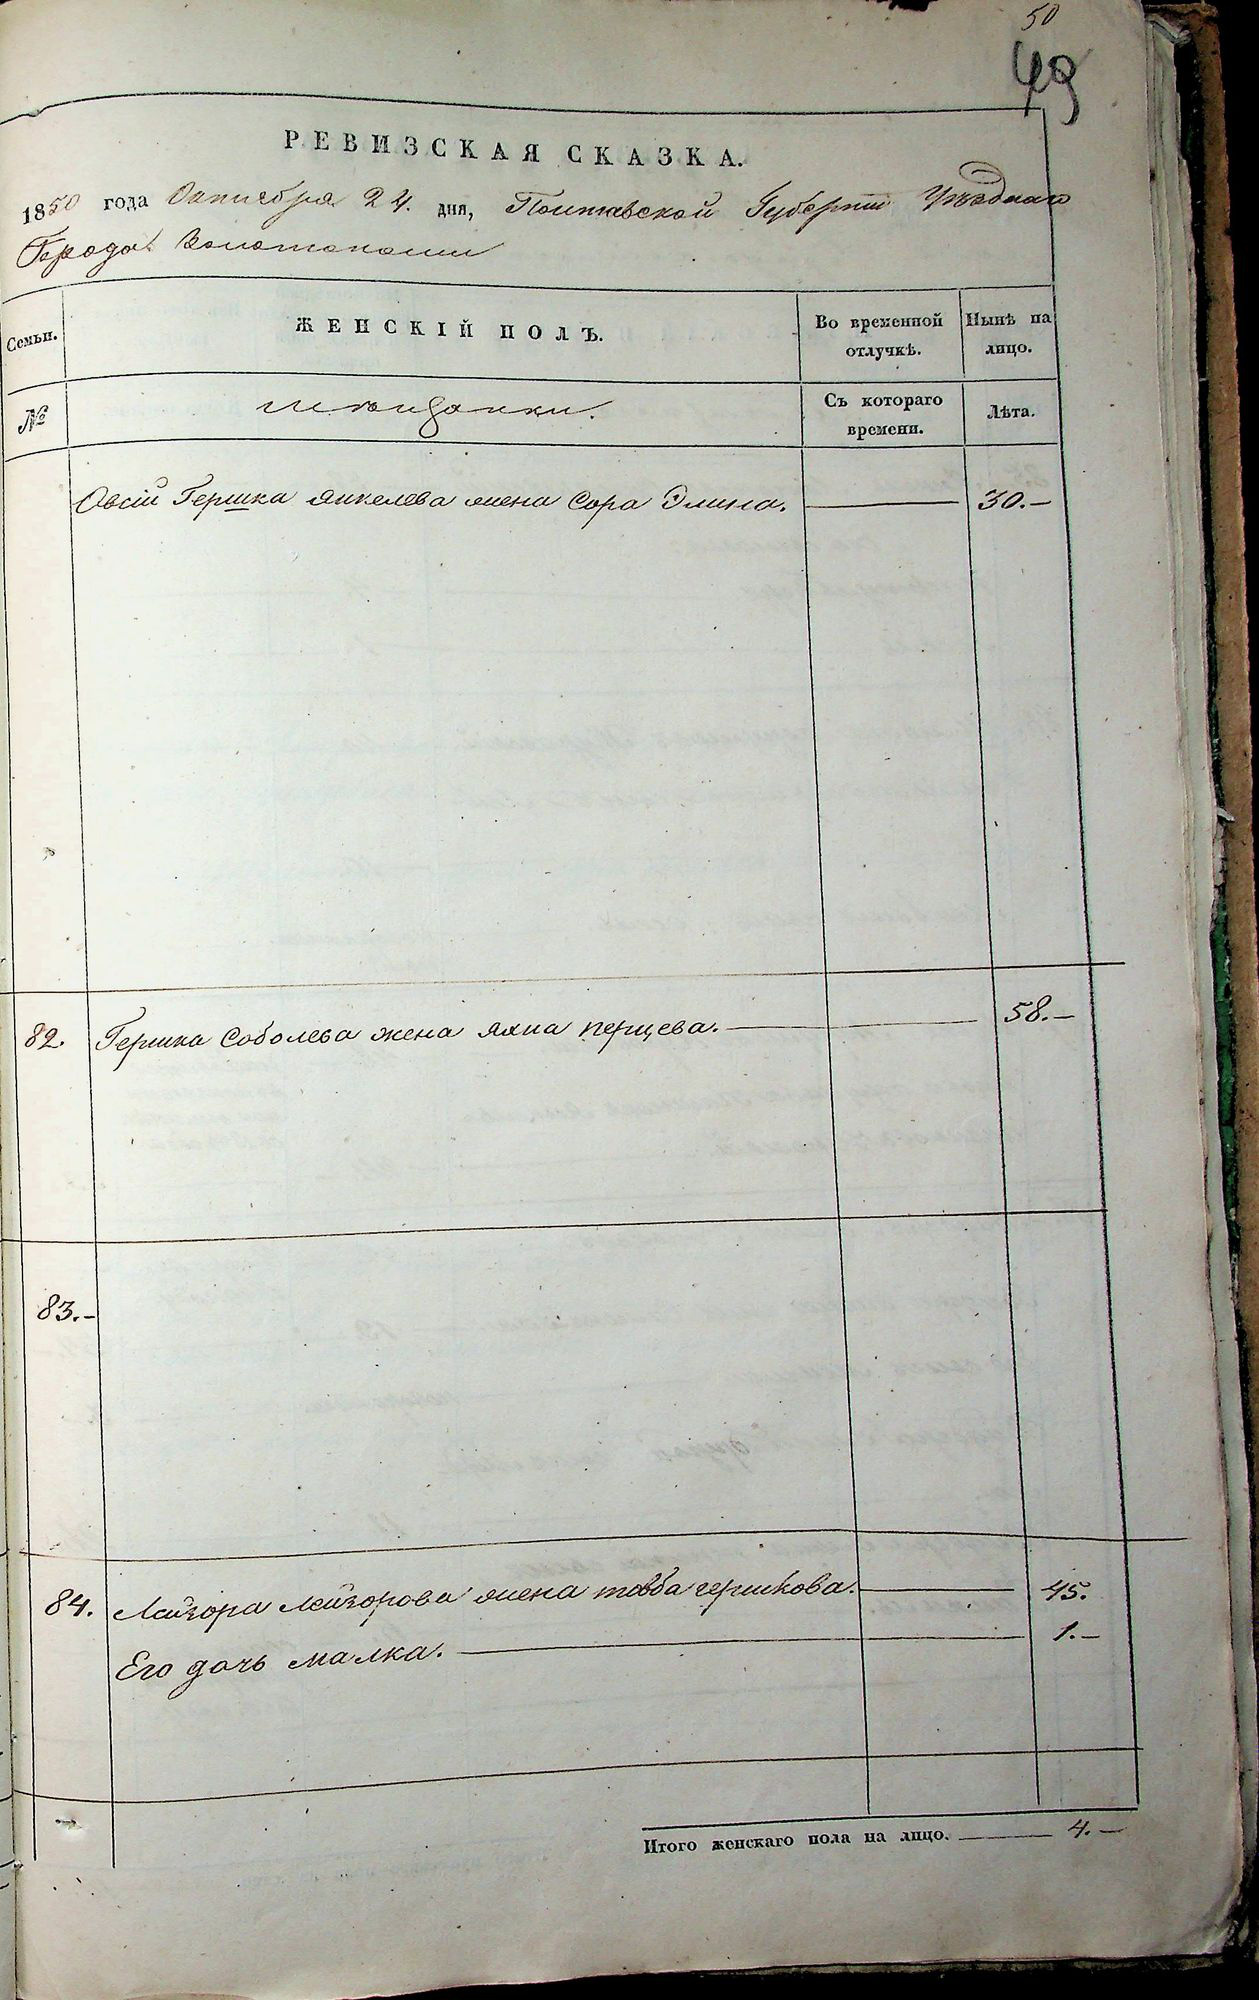 50
49
РЕВИЗСКАЯ СКАЗКА.
1850 года Октября 24. дня, Полтавской Губернии Уѣзднаго
Города Золотоноши
Семьи. ЖЕНСКІЙ ПОЛЪ. Во временной отлучкѣ. Нынѣ на лицо.
№ мещанки. Съ котораго времени. Лѣта.
Овсій Гершка Янкелева жена Сора Элина. 30.-
82. Гершка Соболева жена Яхна Перцева. 58.-
83.-
84. Лейзора Лейзорова жена товба гершкова. 45.
Его дочь малка. 1.-
Итого женскаго пола на лицо. 4.-